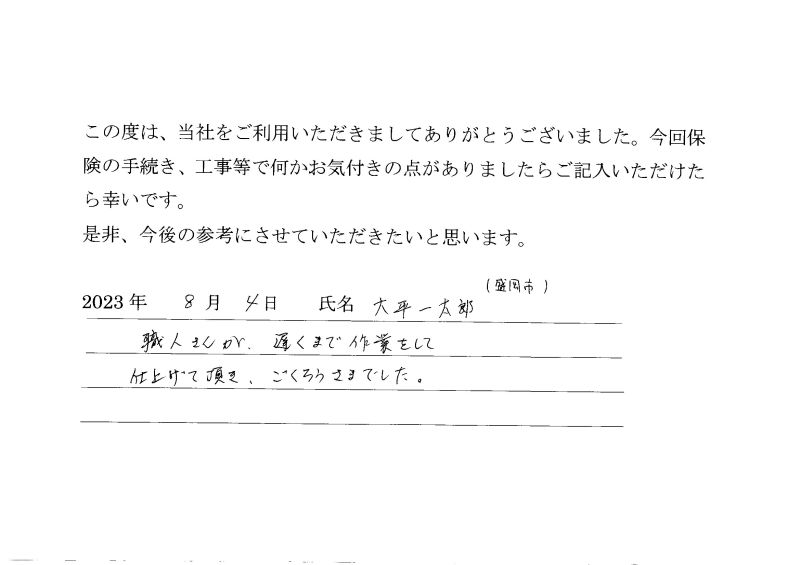 この度は、当社をご利用いただきましてありがとうございました。今回保
険の手続き、工事等で何かお気付きの点がありましたらご記入いただけた
ら幸いです。
是非、今後の参考にさせていただきたいと思います。
(盛岡市)
2023年 8月 4日 氏名 大平一太郎
職人さんが、遅くまで作業をして
仕上げて頂き、ごくろうさまでした。